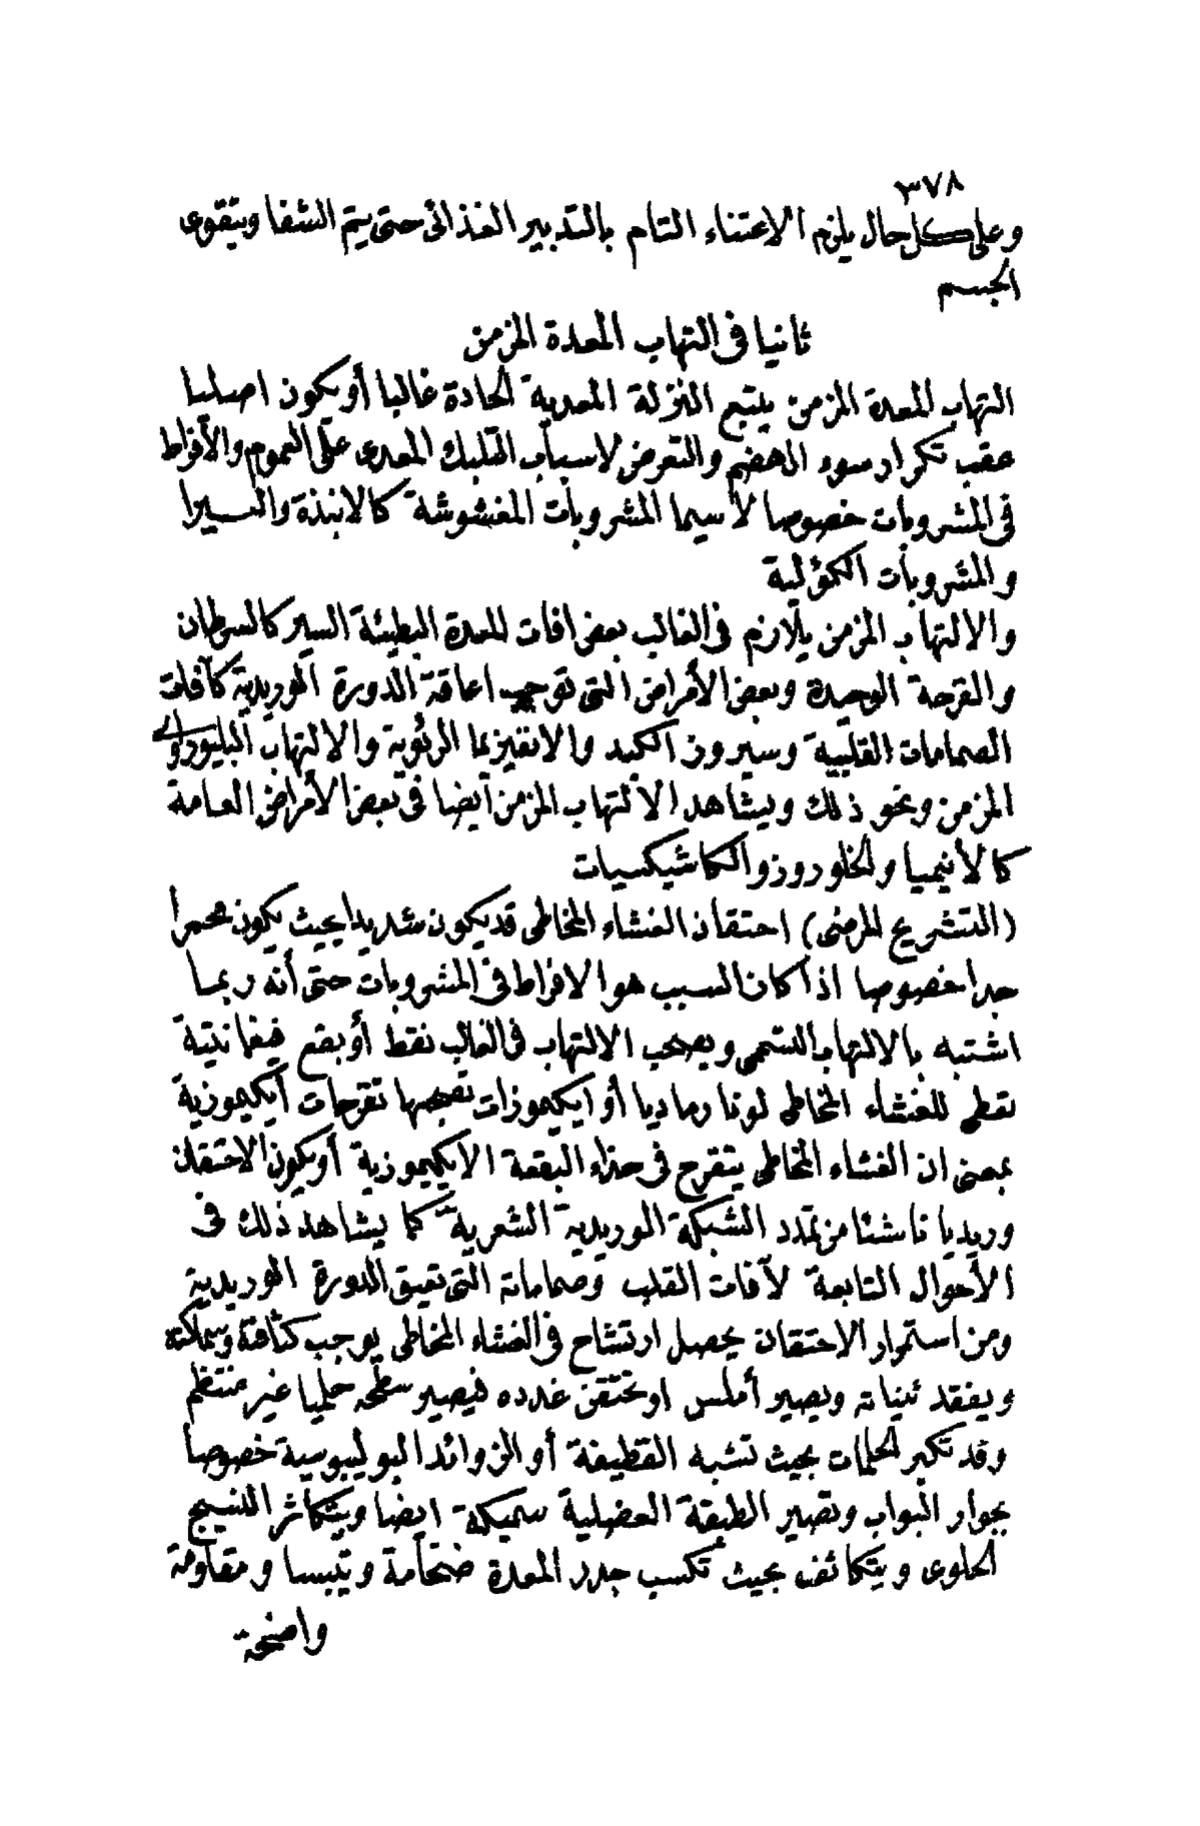 ٣٧٨
وعلى كل حال يلزم الاعتناء التام بالتدبير الغذائى حتى يتم الشفا ويتقوى
الجسم
ثانيا فى التهاب المعدة المزمن
التهاب المعدة المزمن يتبع النزلة المعدية الحادة غالبا أو يكون اصليا
عقب تكرار سوء الهضم والتعرض لاسباب التلبك المعدى على العموم والافراط
فى المشروبات خصوصا لاسيما المشروبات المغشوشة كالانبذة والبيرا
والمشروبات الكؤلية
والالتهاب المزمن يلازم فى الغالب بعض افات المعدة البطيئة السير كالسرطان
والقرحة الوحيدة وبعض الأمراض التى توجب اعاقة الدورة الوريدية كآفات
الصمامات القلبية وسيروز الكبد والانفيزيما الرئوية والالتهاب البليوراوى
المزمن ونحو ذلك ويشاهد الالتهاب المزمن ايضا فى بعض الأمراض العامة
كالأنيميا والخلوروز والكاشيكسيات
(التشريح المرضى) احتقان الغشاء المخاطى قد يكون شديدا بحيث يكون محمرا
جدا خصوصا اذا كان السبب هو الافراط فى المشروبات حتى أنه ربما
اشتبه بالالتهاب السمى ويصحب الالتهاب فى الغالب نقط أو بقع
تعطى للغشاء المخاطى لونا رماديا أو ايكيموزات تصحبها تقرحات ايكيموزية
بمعنى ان الغشاء المخاطى يتقرح فى حذاء البقعة الايكيموزية أو يكون الاحتقان
وريديا ناشئا من تمدد الشبكة الوريدية الشعرية كما يشاهد ذلك فى
الأحوال التابعة لآفات القلب وصماماته التى تعيق الدورة الوريدية
ومن استمرار الاحتقان يحصل ارتشاح فى الغشاء المخاطى يوجب كثافته وسماكته
ويفقد ثنياته ويصير أملس او تحتقن غدده فيصير سطحه حلميا غير منتظم
وقد تكبر الحلمات بحيث تشبه القطيفة أو الزوائد البوليبوسية خصوصا
بجوار البواب وتصير الطبقة العضلية سميكة ايضا ويتكاثر النسيج
الخلوى ويتكاثف بحيث تكسب جدر المعدة ضخامة وتيبسا ومقاومة
واضحة